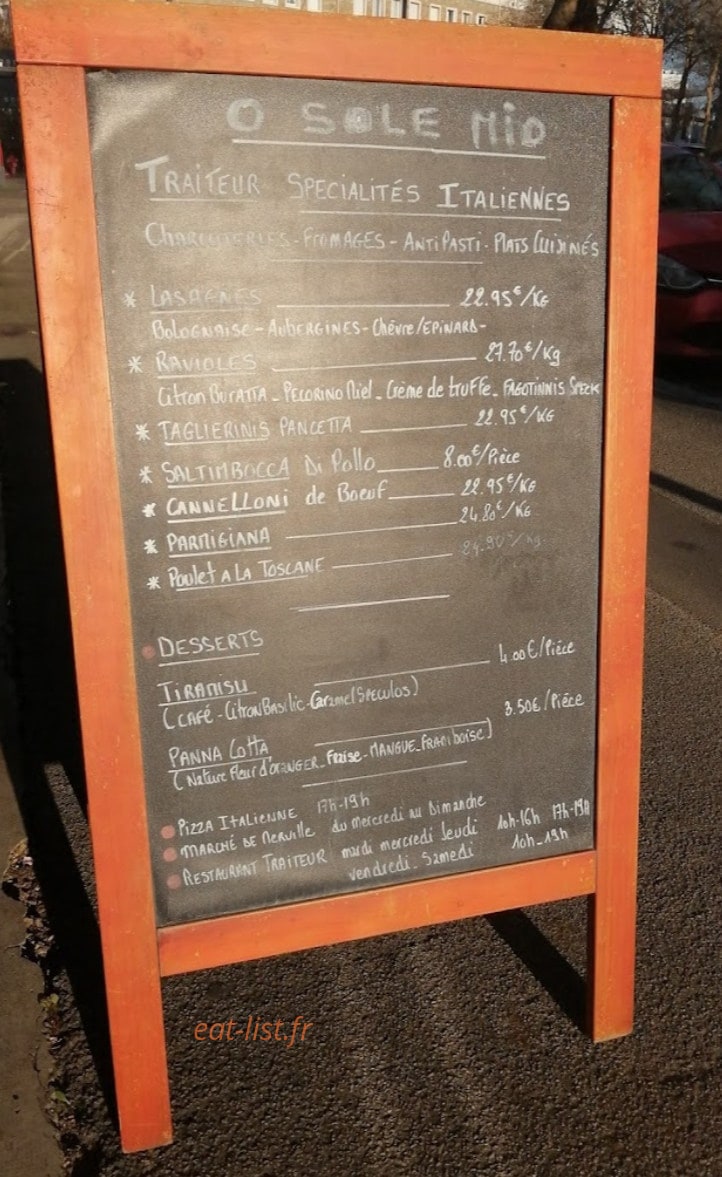 O SOLE MIO
TRAITEUR SPECIALITÉS ITALIENNES
CHARCUTERIES - FROMAGES - ANTIPASTI - PLATS CUISINÉS
* LASAGNES 22.95€/KG
BOLOGNAISE - AUBERGINES - Chèvre/EPINARD -
* RAVIOLES 27.70€/Kg
Citron BURATTA - PECORINO Miel - Crème de truffe - FAGOTINNIS SPECK
* TAGLIERINIS PANCETTA 22.95€/KG
* SALTIMBOCCA Di Pollo 8.00€/Pièce
* CANNELLONI de Boeuf 22.95€/KG
* PARMIGIANA 24.80€/KG
* Poulet A LA TOSCANE 24.90€/Kg
DESSERTS
TIRAMISU 4.00€/Pièce
(CAFÉ - Citron Basilic - Caramel Speculos)
PANNA COTTA 3.50€/Pièce
(Nature Fleur d'ORANGER - Fraise - MANGUE - Framboise)
PIZZA ITALIENNE 17h-19h
MARCHÉ DE Merville du mercredi au Dimanche
RESTAURANT TRAITEUR mardi mercredi Jeudi 10h-16h 17h-19h
vendredi - Samedi 10h-19h
eat-list.fr